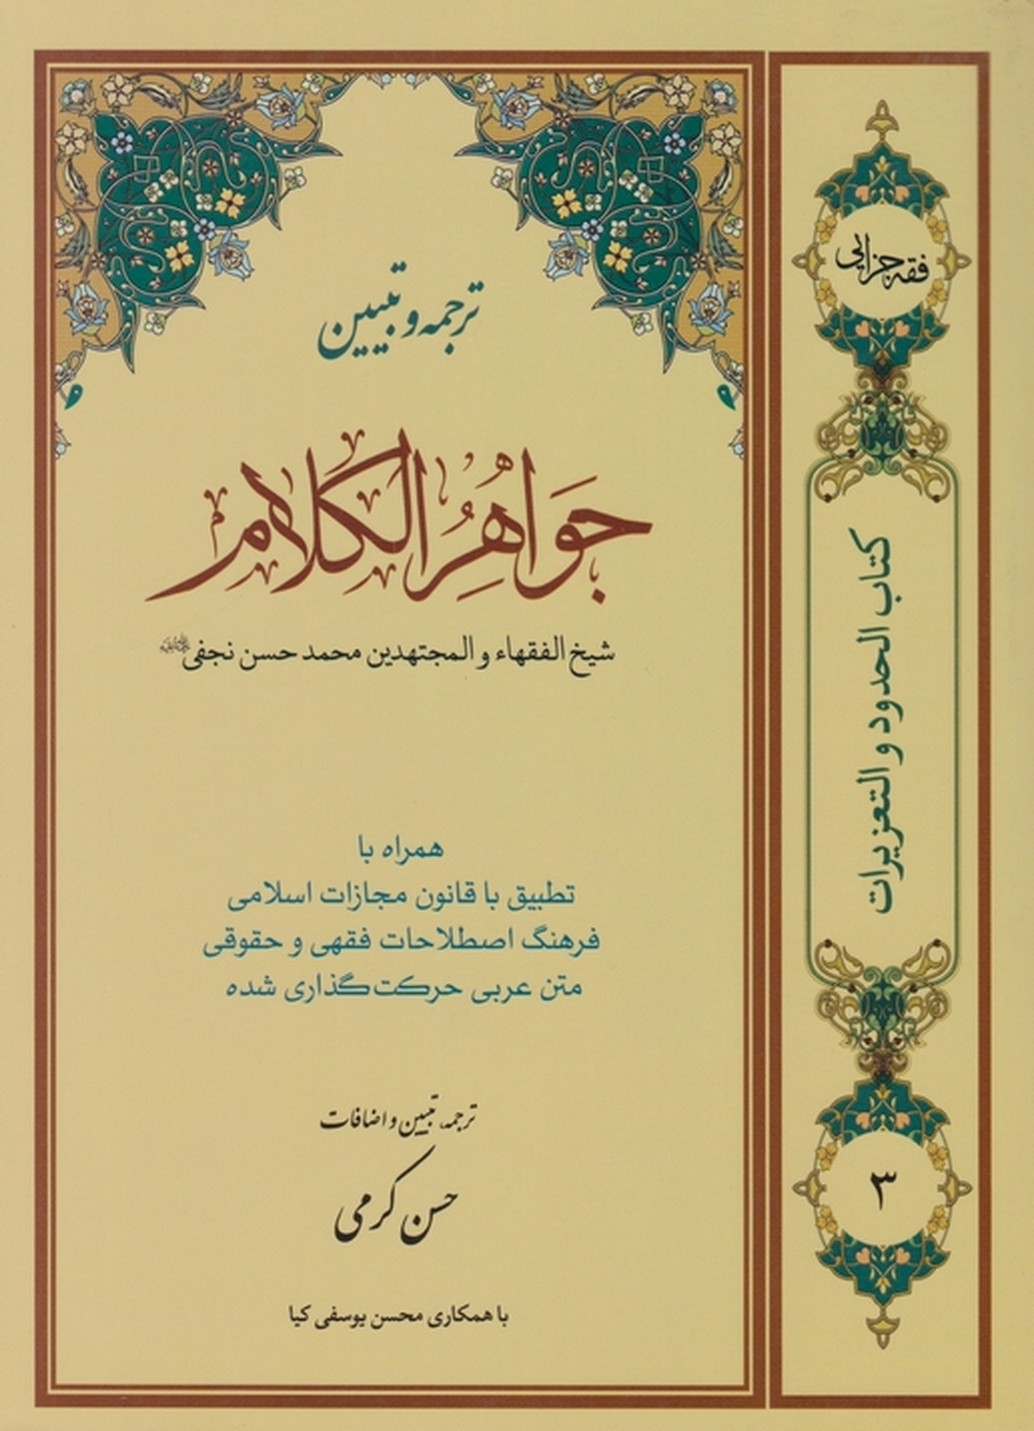 ترجمه و تبیین
جَوَاهِرُ الکلام
شیخ الفقهاء و المجتهدین محمد حسن نجفی
همراه با
تطبیق با قانون مجازات اسلامی
فرهنگ اصطلاحات فقهی و حقوقی
متن عربی حرکت‌گذاری شده
ترجمه، تبیین و اضافات
حسن کرمی
با همکاری محسن یوسفی کیا
فقه جزایی
کتاب الحدود و التعزیرات
۳